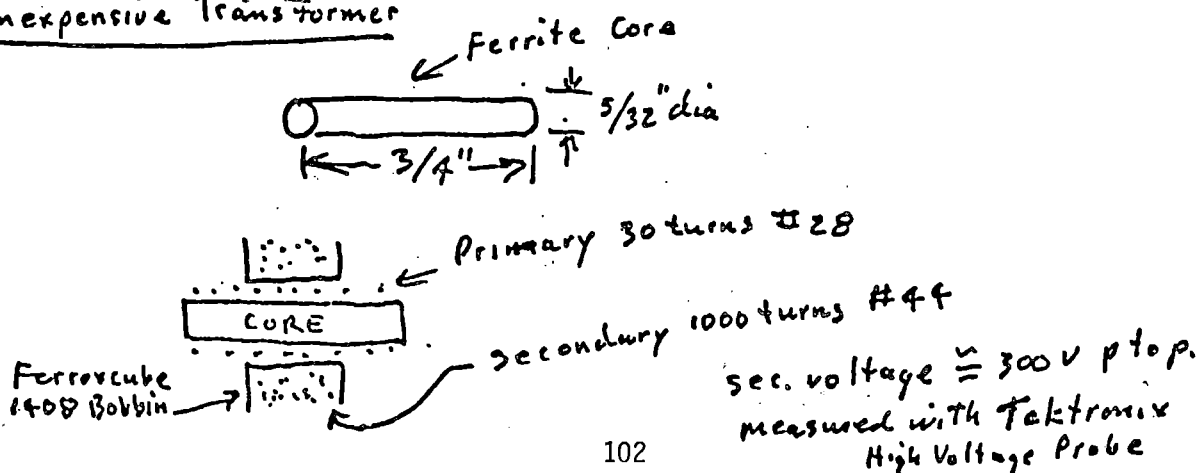 nexpensive Transformer
Ferrite Core
5/32" dia
3/4"
Primary 30 turns #28
CORE
secondary 1000 turns #44
Ferroxcube
1408 Bobbin
sec. voltage ≅ 300 v p to p.
measured with Tektronix
High Voltage Probe
102